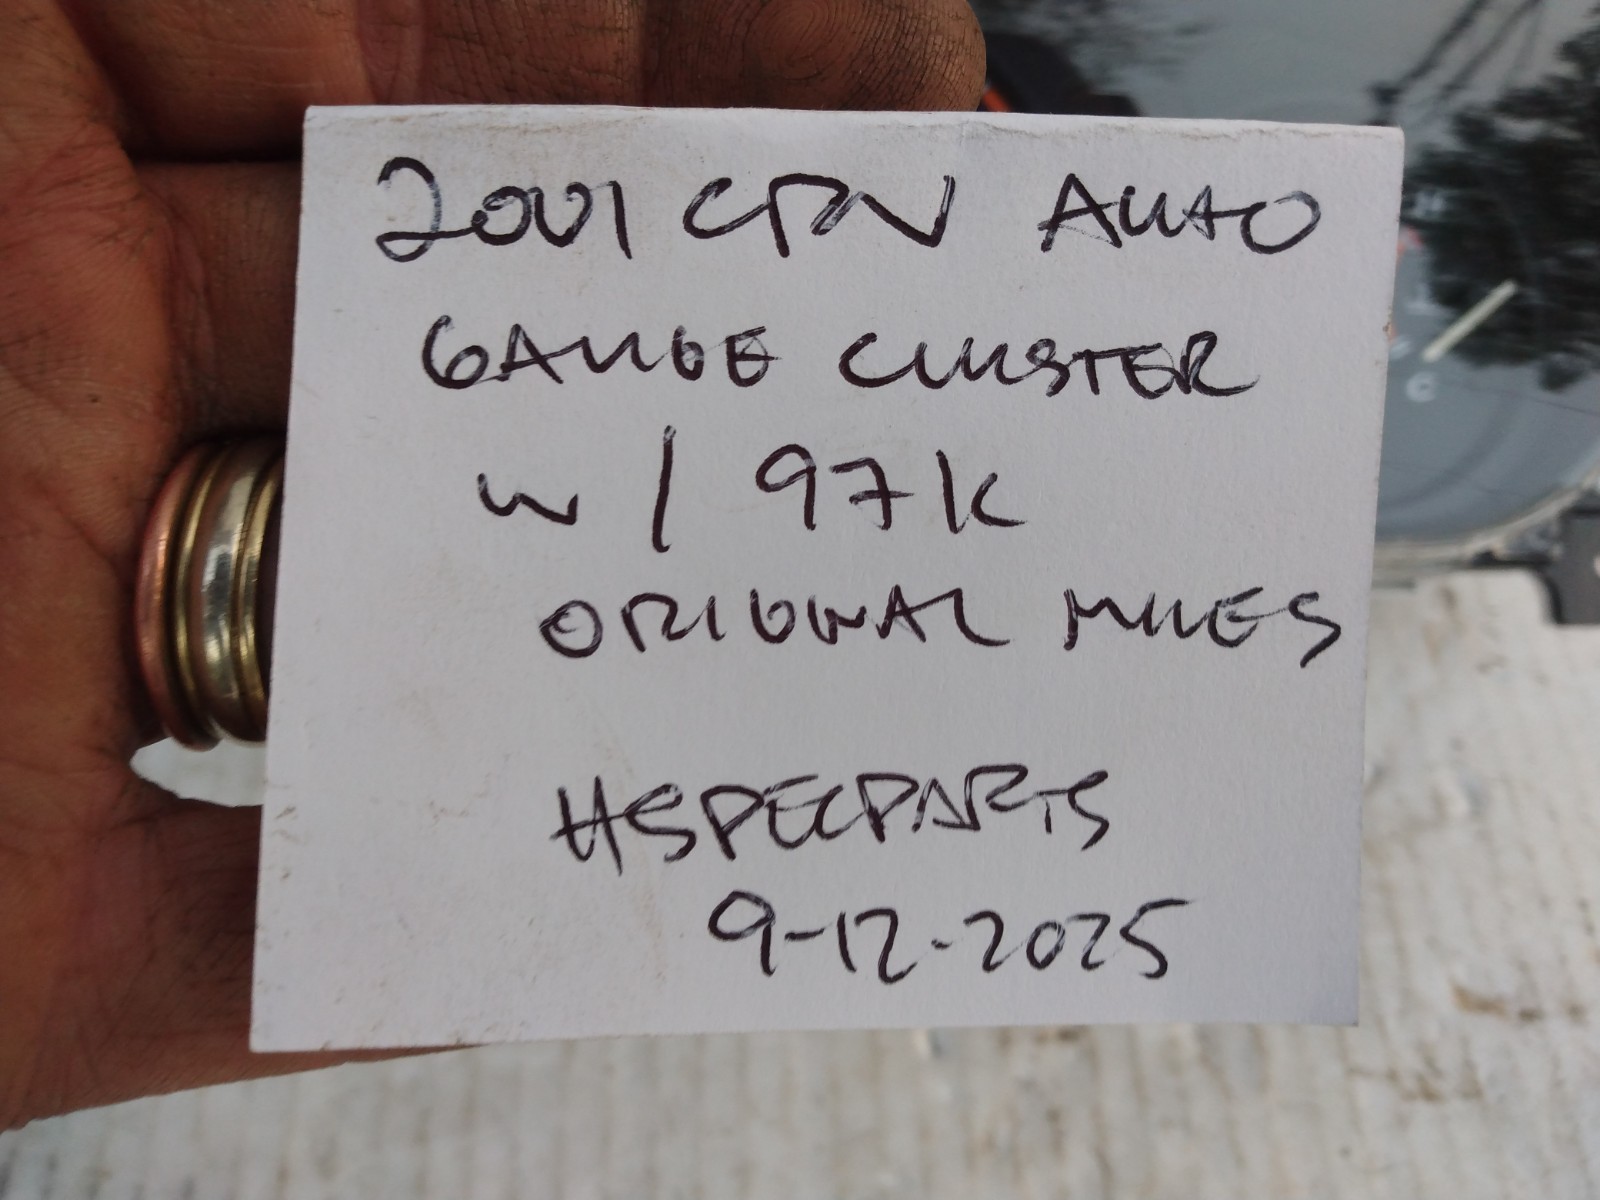 2001 CRV AUTO
GAUGE CLUSTER
w/ 97K
ORIGINAL MILES
HSPECPARTS
9-12-2025
C